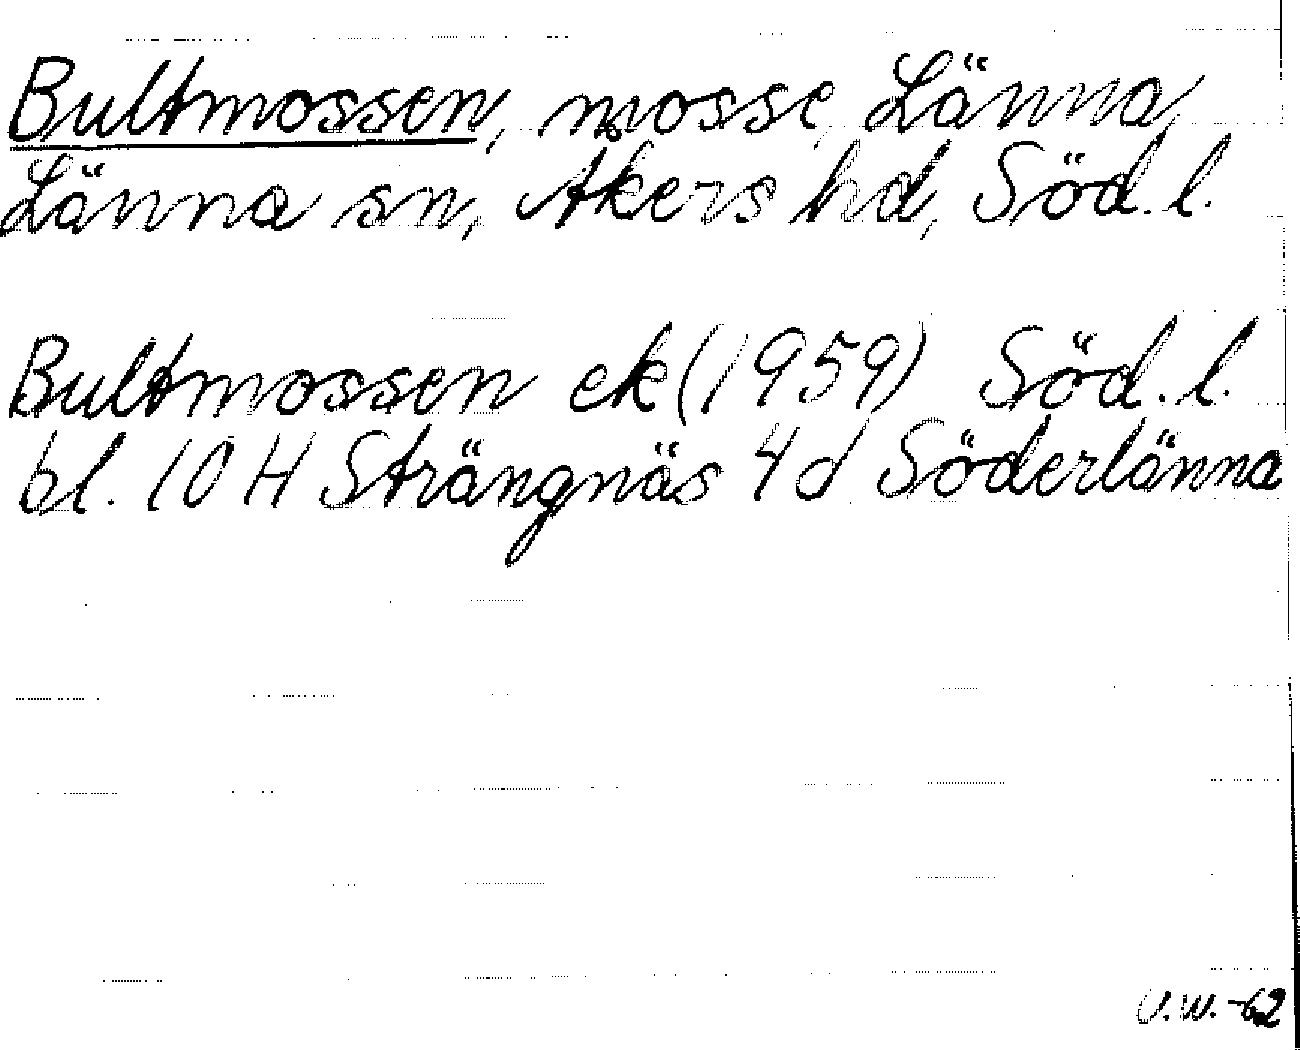 Bultmossen, mosse, Länna,
Länna sn, Åkers hd, Söd. l.
Bultmossen ek (1959) Söd. l.
bl. 10 H Strängnäs 4d Söderlänna
U.W. -62